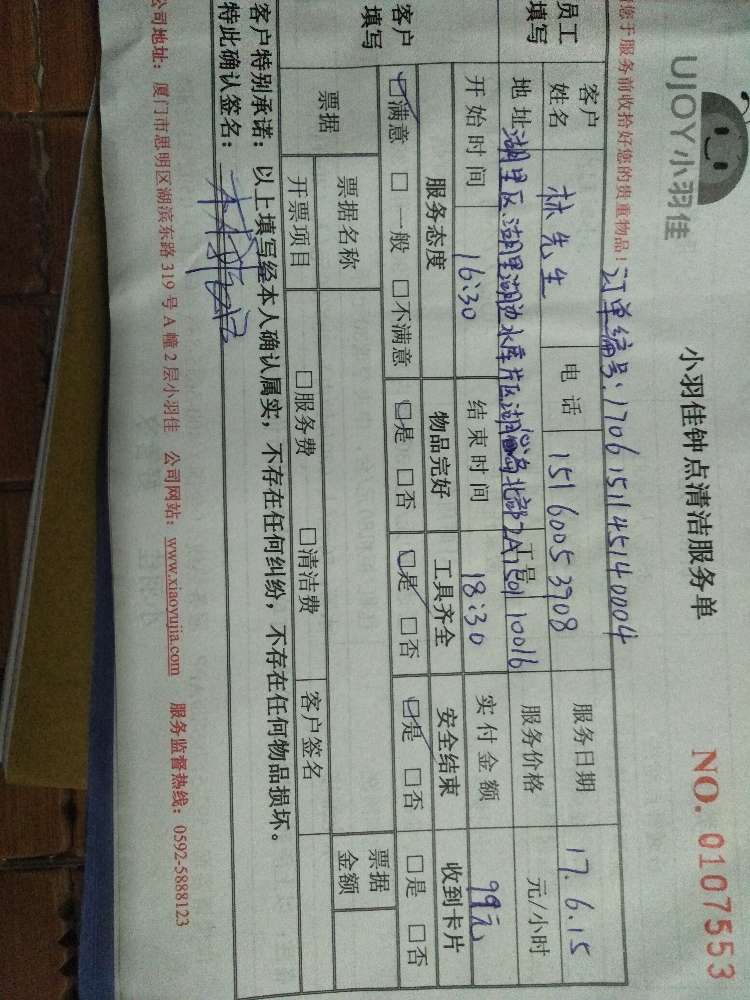 UJOY小羽佳
小羽佳钟点清洁服务单
NO. 0107553
您于服务前收拾好您的贵重物品！
订单编号：17061511451140004
员工填写
客户姓名 林先生 电话 15160053908 服务日期 17.6.15
地址 湖里区 工号 10016 服务价格 元/小时
开始时间 16:30 结束时间 18:30 实付金额 99元
客户填写
服务态度 物品完好 工具齐全 安全结束 收到卡片
☑满意 □一般 □不满意 ☑是 □否 ☑是 □否 ☑是 □否 □是 □否
票据 票据名称 票据金额
开票项目 □服务费 □清洁费 客户签名
客户特别承诺：以上填写经本人确认属实，不存在任何纠纷，不存在任何物品损坏。
特此确认签名：
公司地址：厦门市思明区湖滨东路 319 号 A 幢 2 层小羽佳 公司网站：www.xiaoyujia.com 服务监督热线：0592-5888123